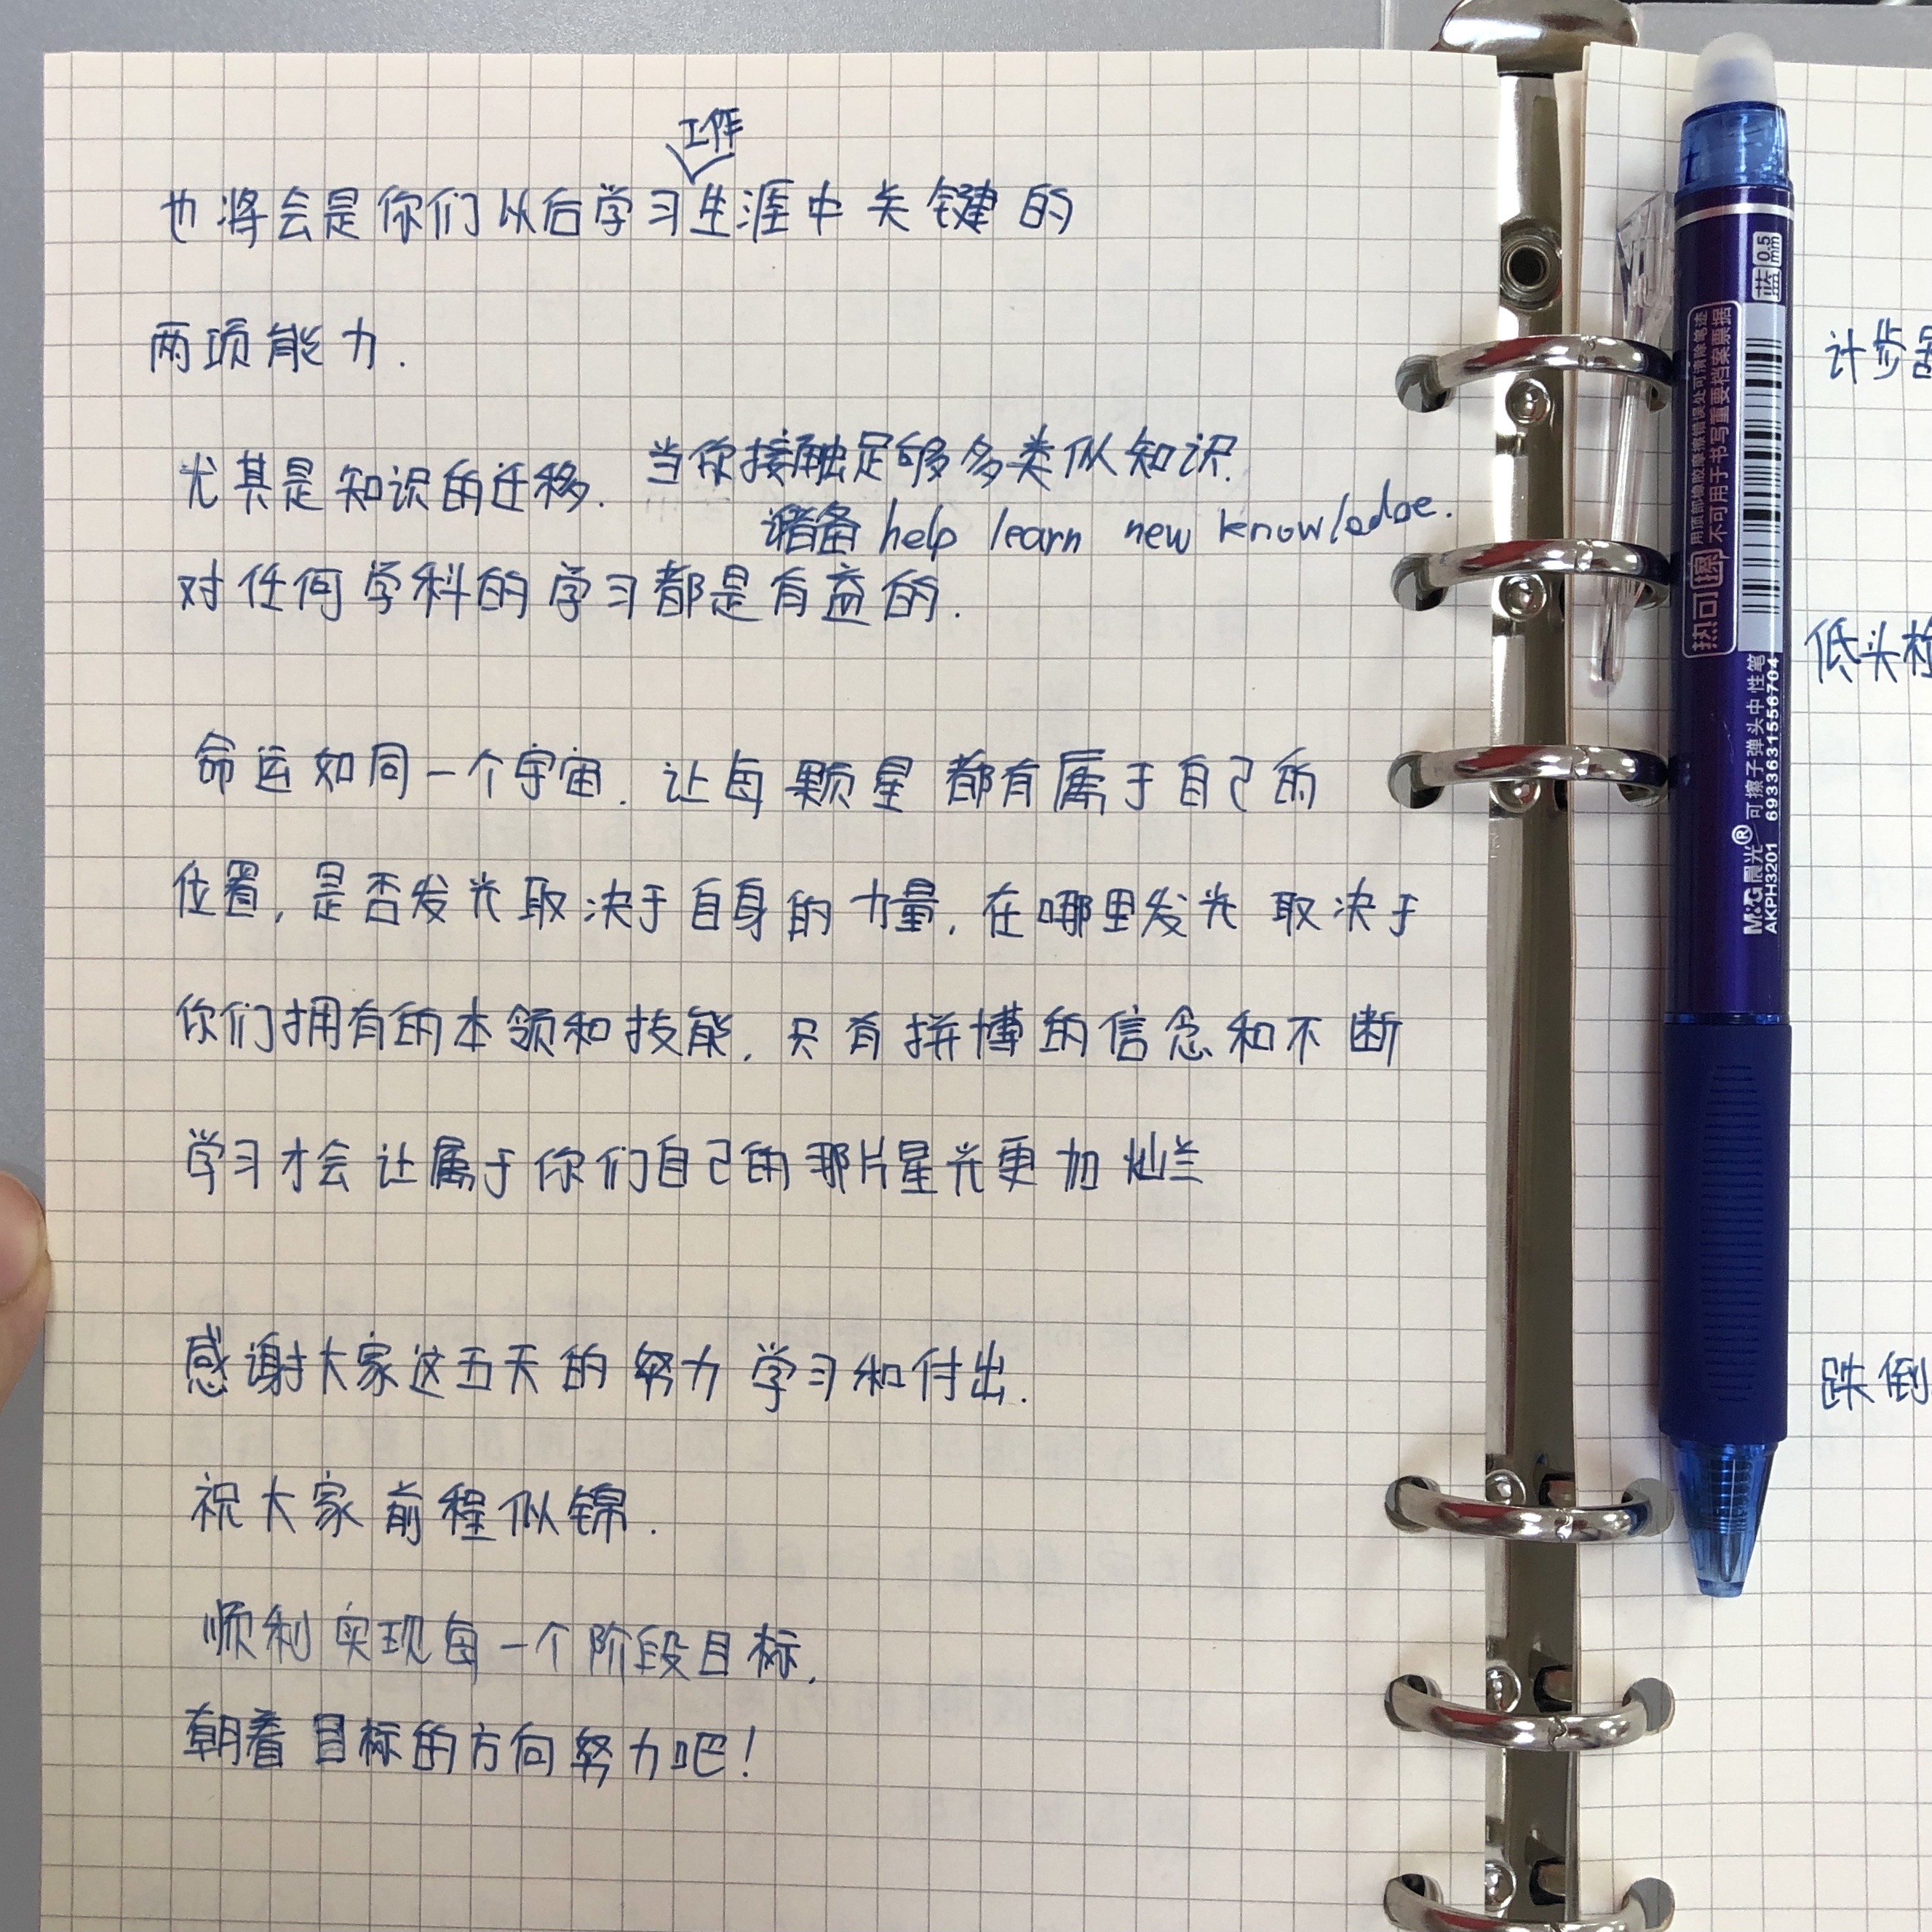 工作
也将会是你们以后学习生涯中关键的
两项能力.
尤其是知识的迁移. 当你接触足够多类似知识.
储备 help learn new knowledge.
对任何学科的学习都是有益的.
命运如同一个宇宙. 让每颗星都有属于自己的
位置, 是否发光取决于自身的力量, 在哪里发光取决于
你们拥有的本领和技能, 只有拼搏的信念和不断
学习才会让属于你们自己的那片星光更加灿兰
感谢大家这五天的努力学习和付出.
祝大家前程似锦.
顺利实现每一个阶段目标,
朝着目标的方向努力吧!
蓝 0.5 mm
用顶部橡胶摩擦错误处可清除笔迹
不可用于书写重要档案票据
热可擦
M&G晨光® 可擦子弹头中性笔
AKPH3201 6933631556704
计步
低头
跌倒